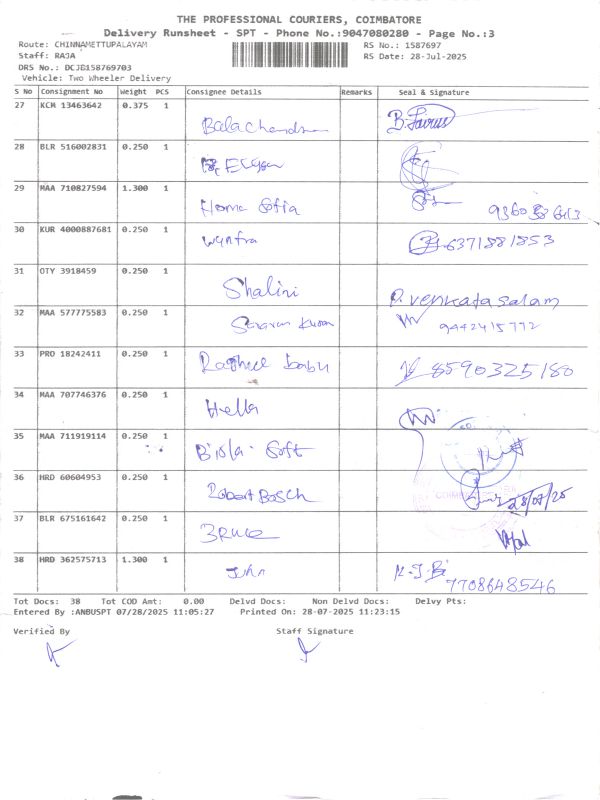 THE PROFESSIONAL COURIERS, COIMBATORE
Delivery Runsheet - SPT - Phone No.:9047080280 - Page No.:3
Route: CHINNAMETTUPALAYAM RS No.: 1587697
Staff: RAJA RS Date: 28-Jul-2025
DRS No.: DCJB158769703
Vehicle: Two Wheeler Delivery
S No Consignment No Weight PCS Consignee Details Remarks Seal & Signature
27 KCM 13463642 0.375 1
Balachandran
28 BLR 516002831 0.250 1
29 MAA 710827594 1.300 1
Home Sofia
30 KUR 4000887681 0.250 1
6371881853
31 OTY 3918459 0.250 1
Shalini P. Venkatasalam
32 MAA 577775583 0.250 1
9442415772
33 PRO 18242411 0.250 1
babu 8590325180
34 MAA 707746376 0.250 1
Hella
35 MAA 711919114 0.250 1
Birla Soft
36 HRD 60604953 0.250 1
Robert Bosch 28/07/25
37 BLR 675161642 0.250 1
38 HRD 362575713 1.300 1
John
7708648546
Tot Docs: 38 Tot COD Amt: 0.00 Delvd Docs: Non Delvd Docs: Delvy Pts:
Entered By :ANBUSPT 07/28/2025 11:05:27 Printed On: 28-07-2025 11:23:15
Verified By Staff Signature